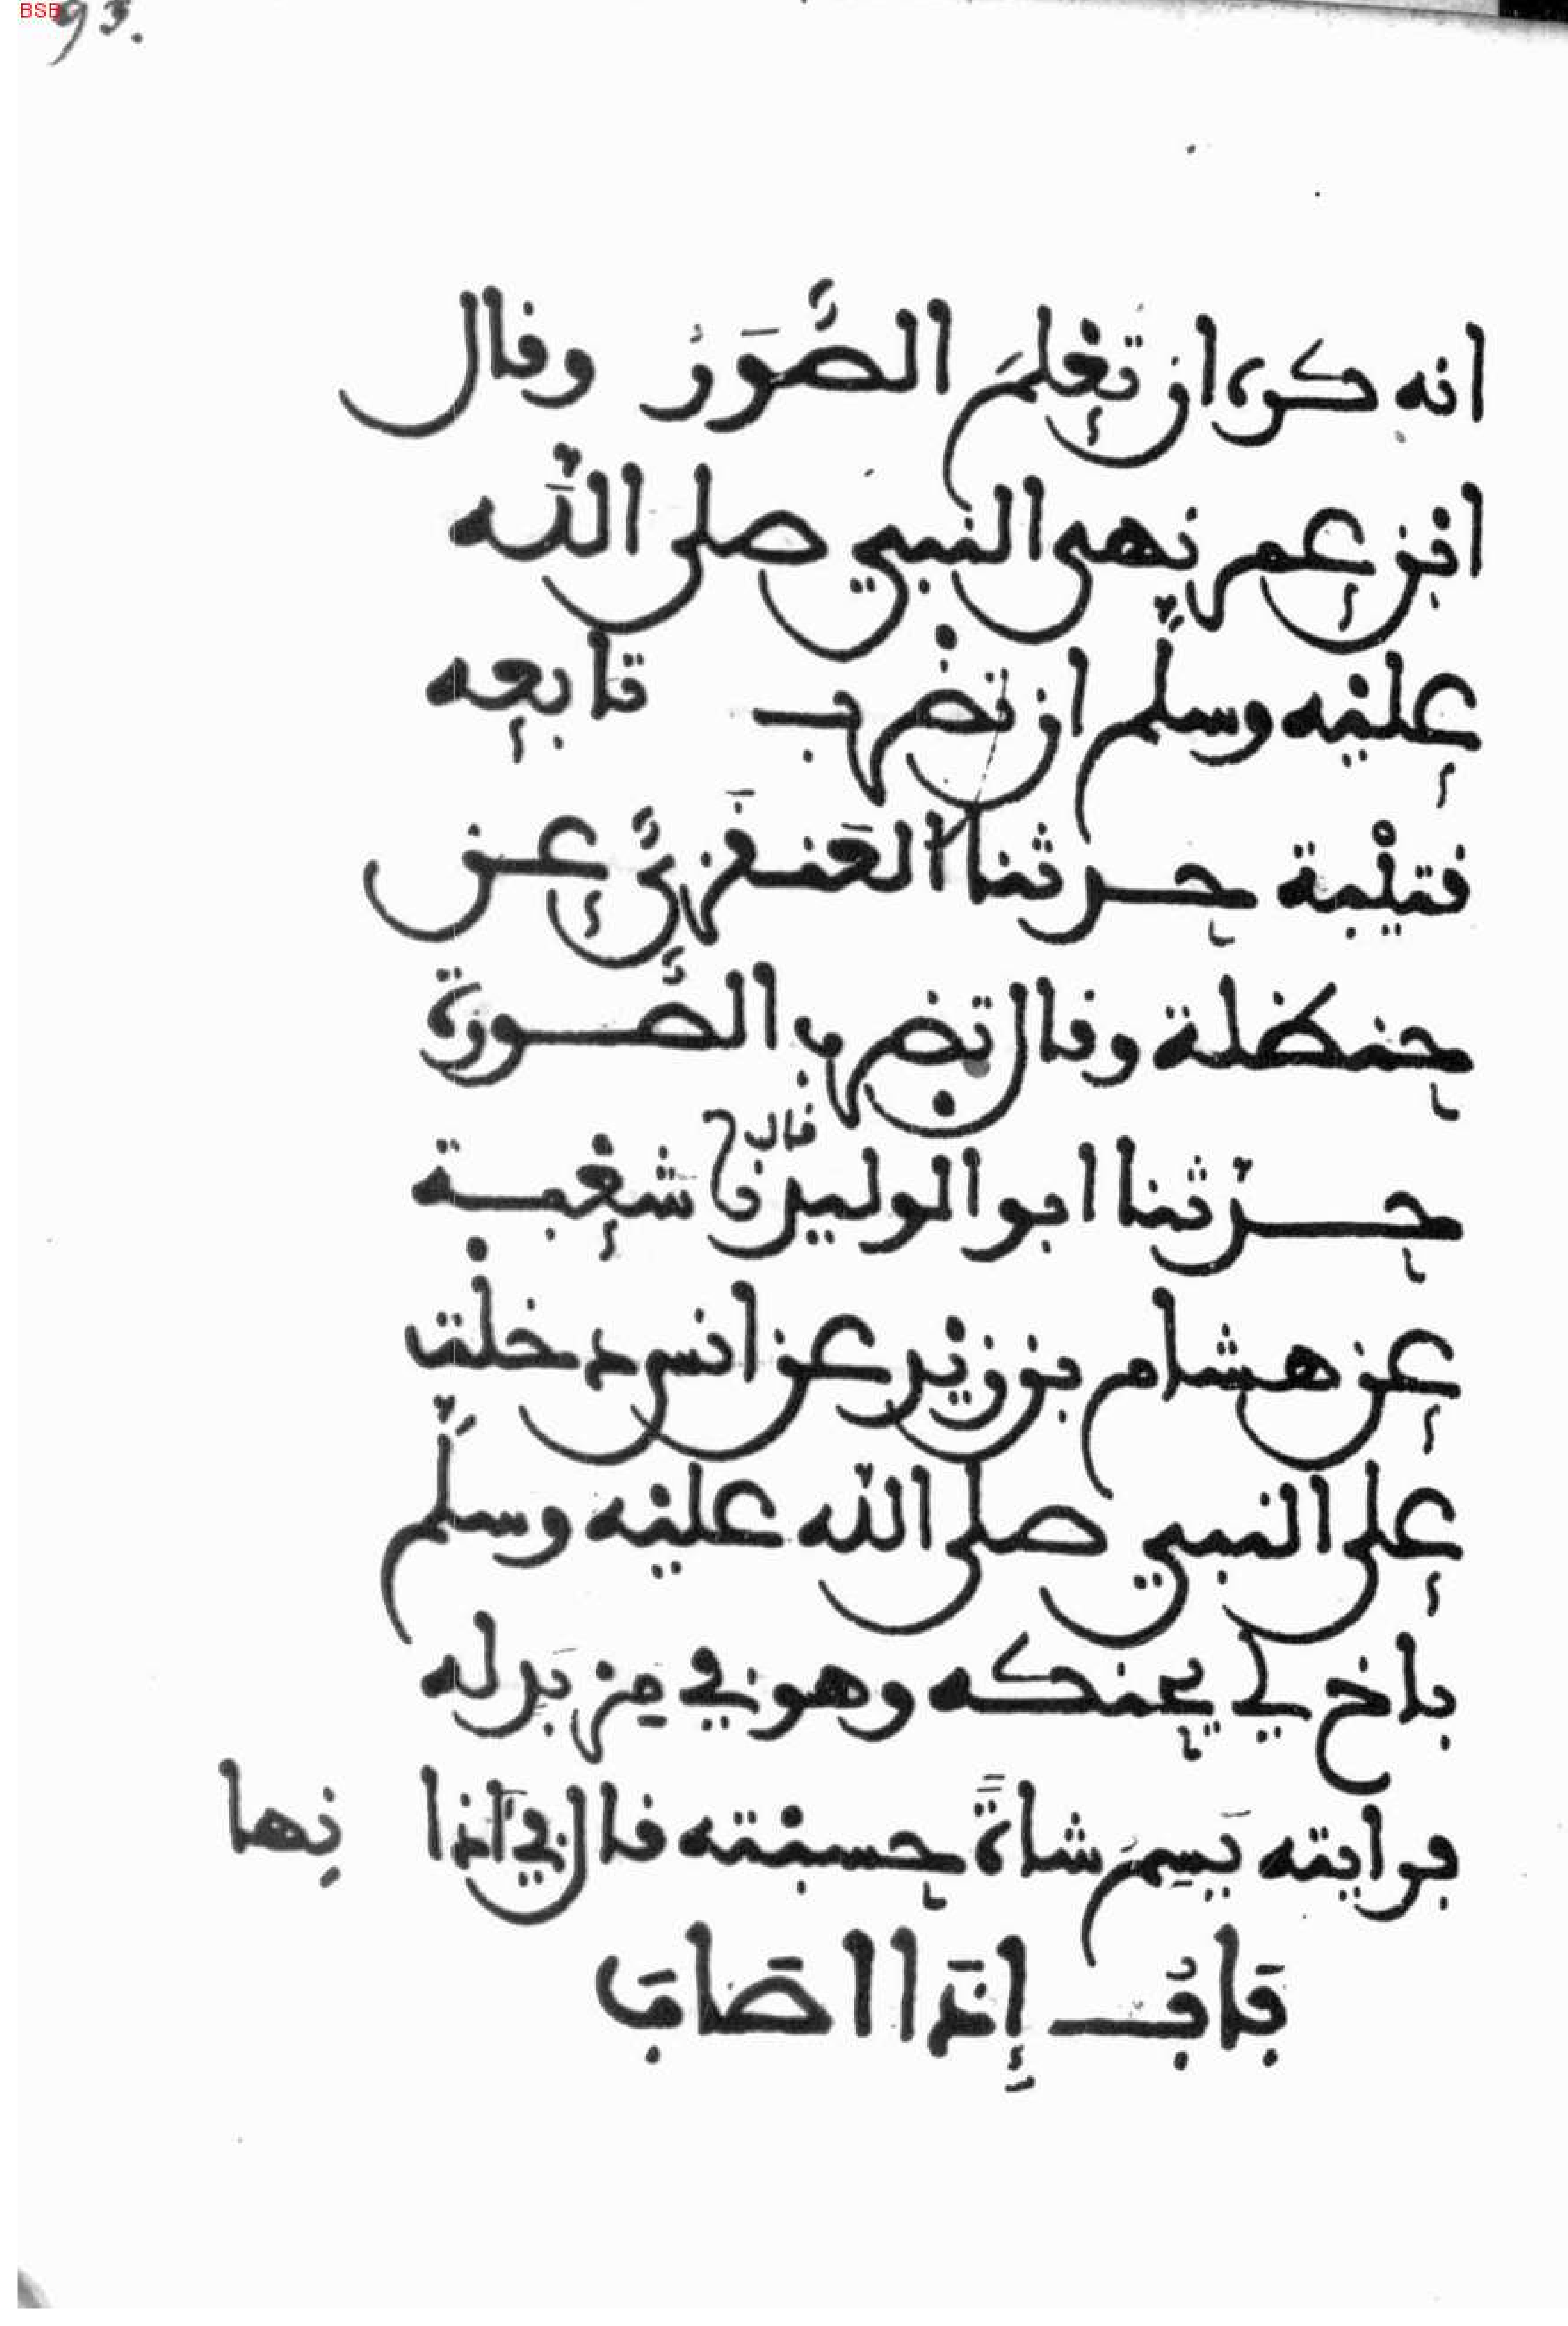 BSB
93.
انه كره ان تعلم الصُّوَرُ وقال
ابن عمر نهى النبي صلى اللّٰه
عليْه وسلّم ان تضْرب تابعه
قتيْبة حدثنا العَنقَزيُّ عن
حنظلة وقال تضرب الصُّورة
حدّثنا ابو الوليد قال نا شعْبة
عن هشام بن زيْد عن انس دخلْت
على النبي صلى اللّٰه عليْه وسلّم
باخ لي يحنكه وهو في مِرْبَد له
فرايته يَسِمُ شاةً حسبْته قال في اٰذانها
بَابُ إِذَا اصَابَ